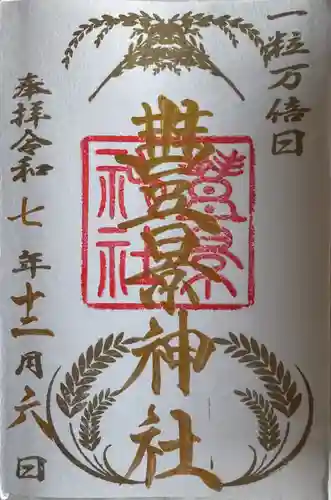 一粒万倍日
豐景神社
豐景神社
奉拝令和七年十二月六日